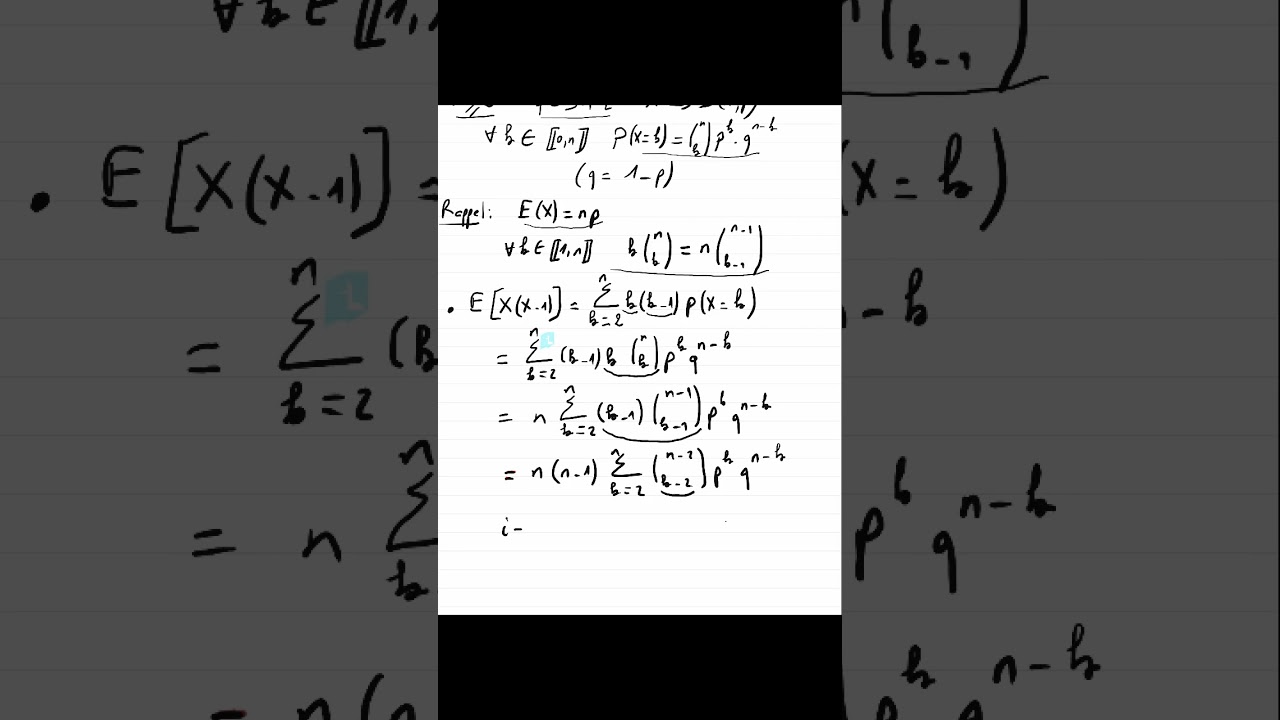 ∀ k ∈ ⟦0,n⟧ P(X=k) = (n k) p^k · q^{n-k}
(q = 1-p)
Rappel: E(X) = np
∀ k ∈ ⟦1,n⟧ k (n k) = n (n-1 k-1)
• E[X(X-1)] = Σ_{k=2}^{n} k(k-1) P(X=k)
= Σ_{k=2}^{n} (k-1) k (n k) p^k q^{n-k}
= n Σ_{k=2}^{n} (k-1) (n-1 k-1) p^k q^{n-k}
= n(n-1) Σ_{k=2}^{n} (n-2 k-2) p^k q^{n-k}
i-